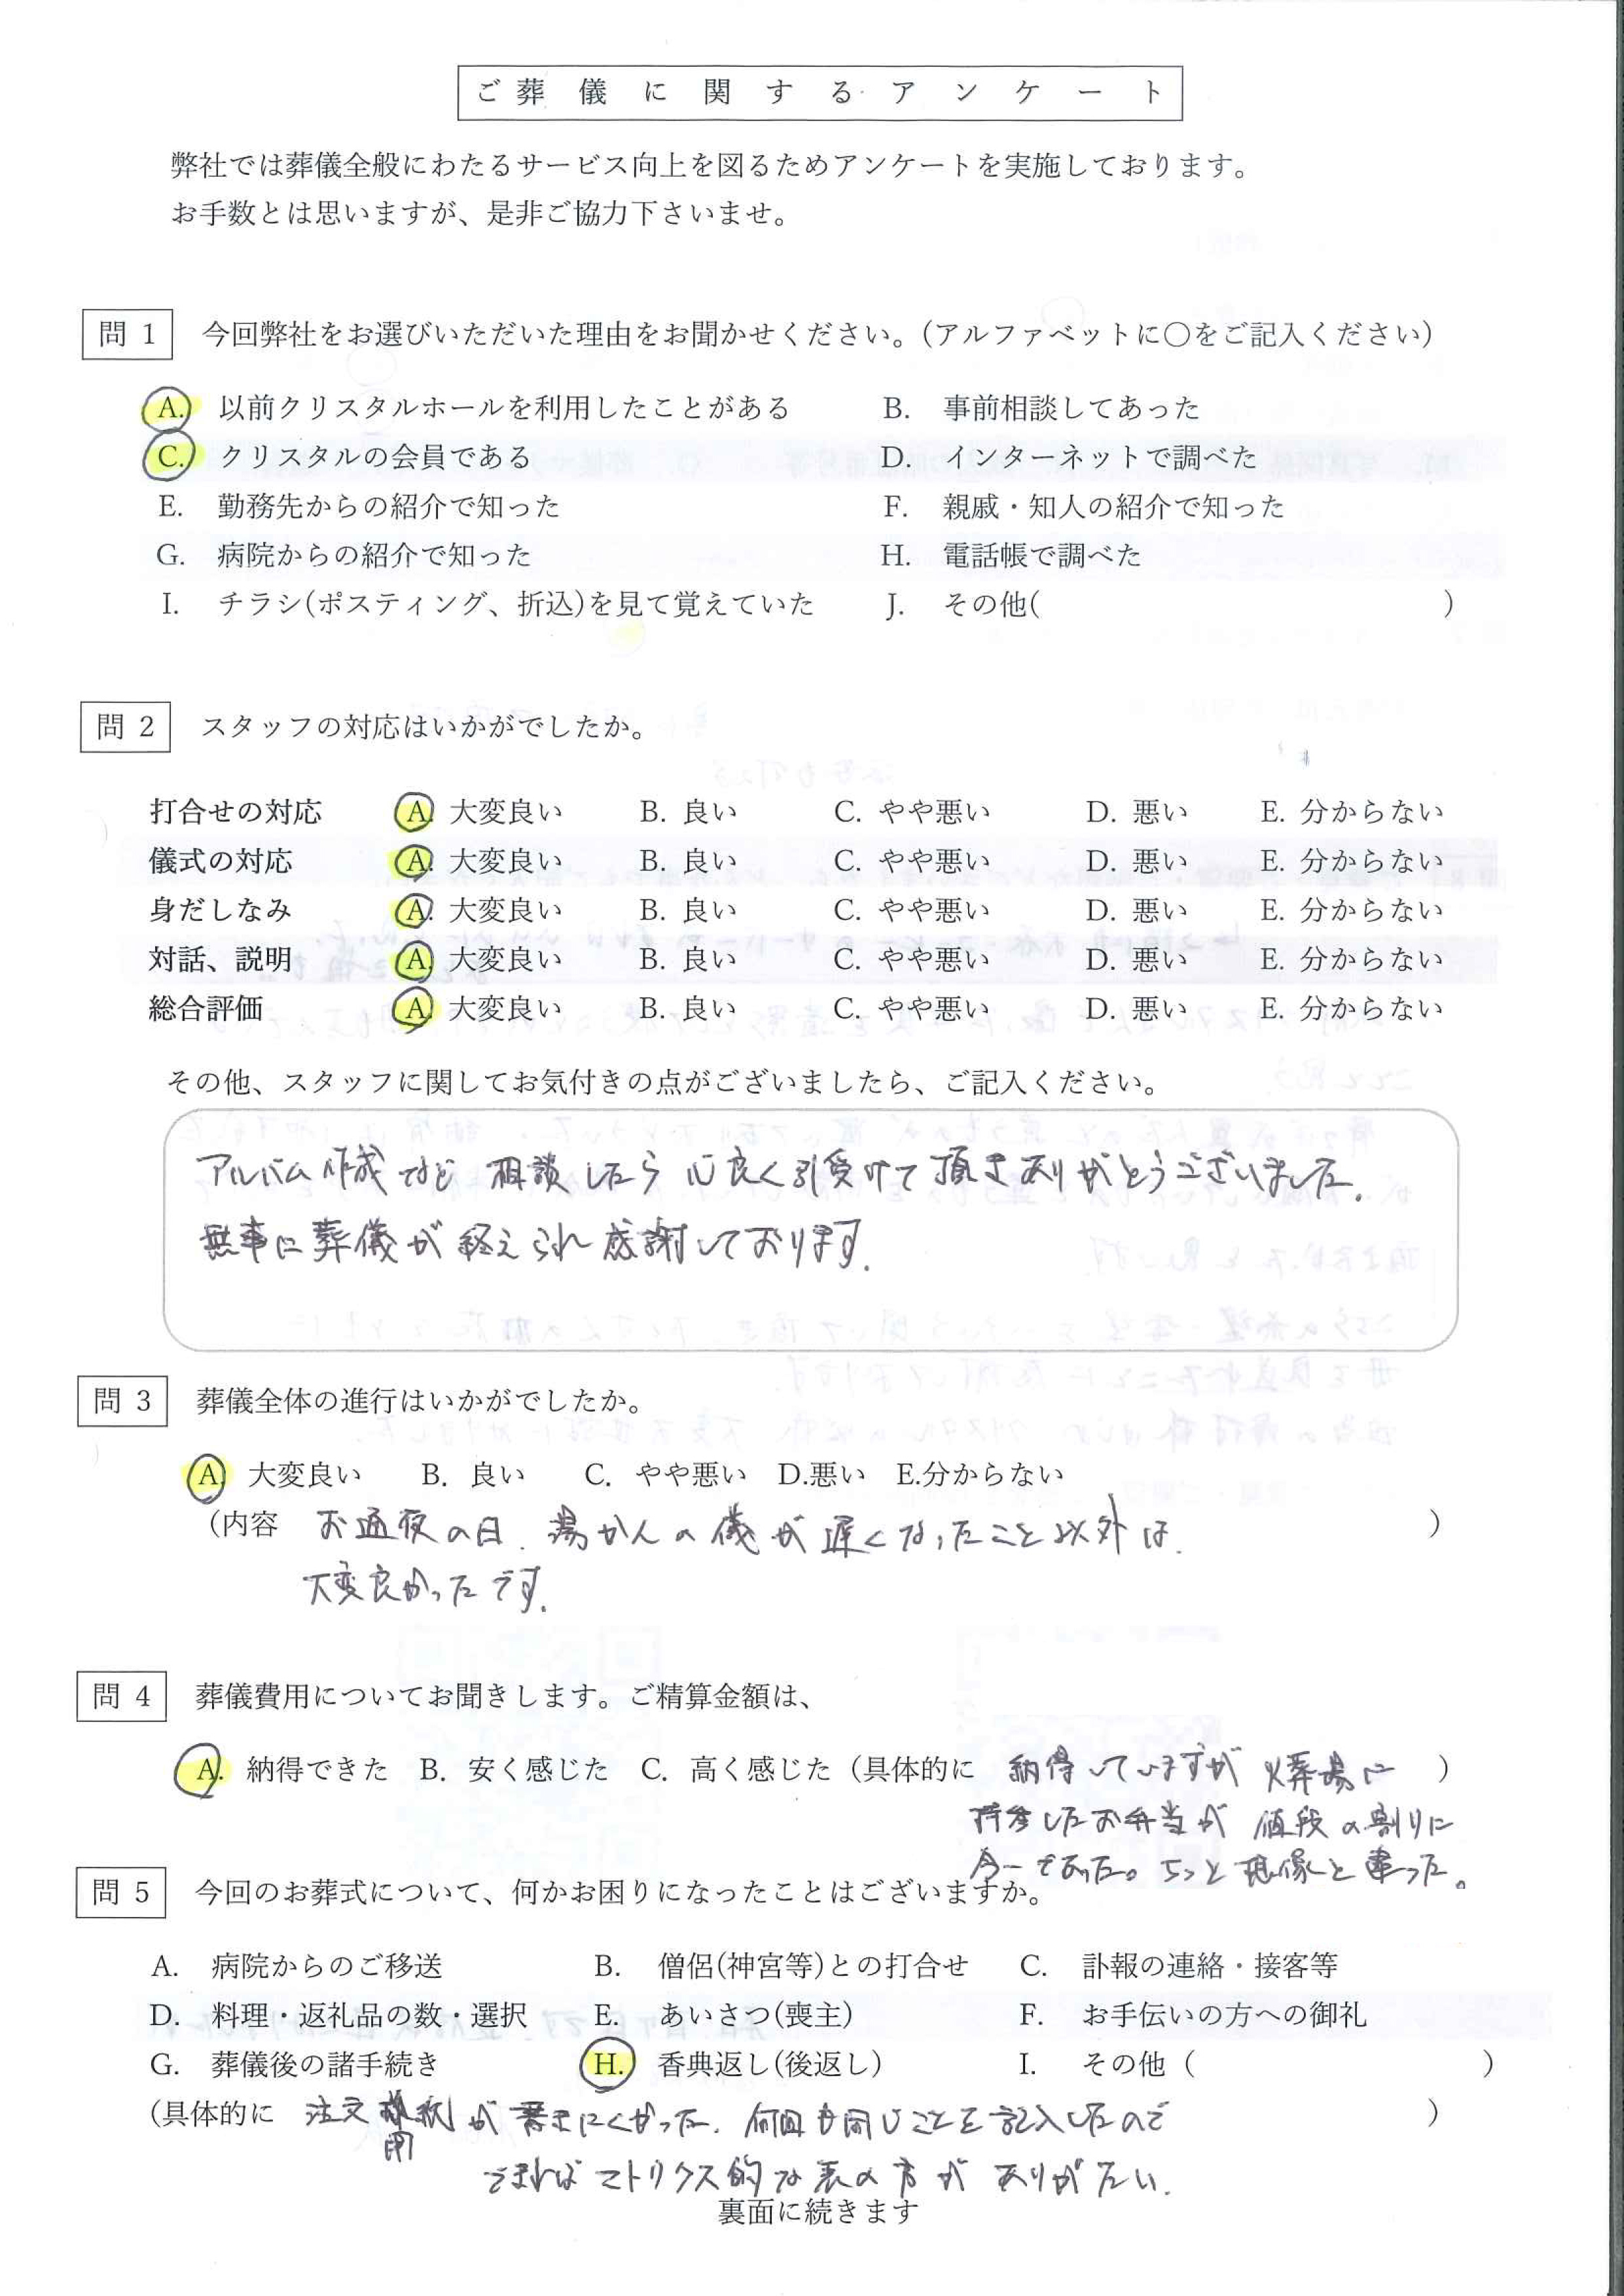 ご葬儀に関するアンケート
弊社では葬儀全般にわたるサービス向上を図るためアンケートを実施しております。
お手数とは思いますが、是非ご協力下さいませ。
問 1 今回弊社をお選びいただいた理由をお聞かせください。（アルファベットに○をご記入ください）
A. 以前クリスタルホールを利用したことがある B. 事前相談してあった
C. クリスタルの会員である D. インターネットで調べた
E. 勤務先からの紹介で知った F. 親戚・知人の紹介で知った
G. 病院からの紹介で知った H. 電話帳で調べた
I. チラシ(ポスティング、折込)を見て覚えていた J. その他( )
問 2 スタッフの対応はいかがでしたか。
打合せの対応 A. 大変良い B. 良い C. やや悪い D. 悪い E. 分からない
儀式の対応 A. 大変良い B. 良い C. やや悪い D. 悪い E. 分からない
身だしなみ A. 大変良い B. 良い C. やや悪い D. 悪い E. 分からない
対話、説明 A. 大変良い B. 良い C. やや悪い D. 悪い E. 分からない
総合評価 A. 大変良い B. 良い C. やや悪い D. 悪い E. 分からない
その他、スタッフに関してお気付きの点がございましたら、ご記入ください。
アルバム作成など相談したら心良く引受けて頂きありがとうございました。
無事に葬儀が終えられ感謝しております。
問 3 葬儀全体の進行はいかがでしたか。
A. 大変良い B. 良い C. やや悪い D.悪い E.分からない
（内容 お通夜の日、湯かんの儀が遅くなったこと以外は、 ）
大変良かったです。
問 4 葬儀費用についてお聞きします。ご精算金額は、
A. 納得できた B. 安く感じた C. 高く感じた（具体的に 納得していますが火葬場に ）
持参したお弁当が値段の割りに
今一であった。ちっと想像と違った。
問 5 今回のお葬式について、何かお困りになったことはございますか。
A. 病院からのご移送 B. 僧侶(神宮等)との打合せ C. 訃報の連絡・接客等
D. 料理・返礼品の数・選択 E. あいさつ(喪主) F. お手伝いの方への御礼
G. 葬儀後の諸手続き H. 香典返し(後返し) I. その他（ ）
（具体的に 注文用紙が書きにくかった。何回も同じことを記入したので ）
できればマトリクス的な表の方がありがたい。
裏面に続きます